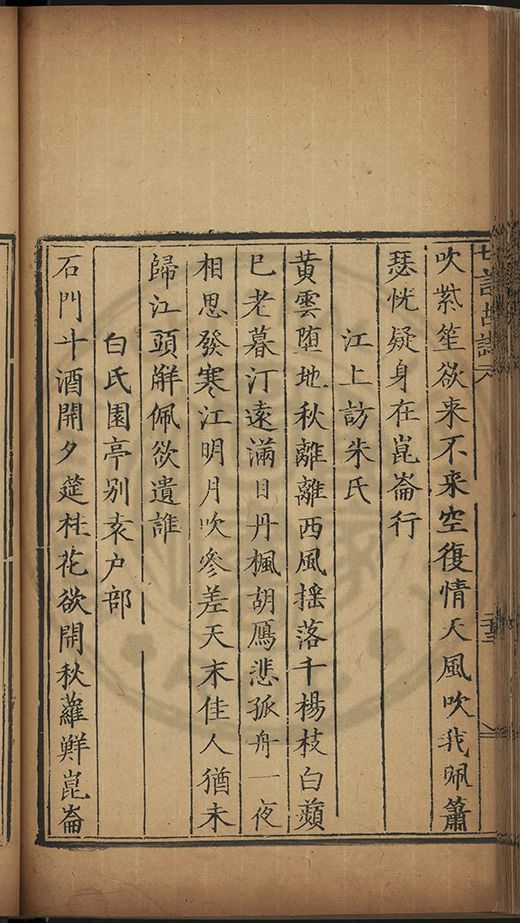 吹紫笙欲来不来空復情天風吹我珮簫
瑟恍疑身在崑崙行
江上訪朱氏
黄雲墮地秋離離西風揺落千楊枝白蘋
已老暮汀遠滿目丹楓胡鴈悲孤舟一夜
相思發寒江明月吹參差天末佳人猶未
歸江頭解佩欲遺誰
白氏園亭别袁户部
石門斗酒開夕筵桂花欲開秋蘿鮮崑崙